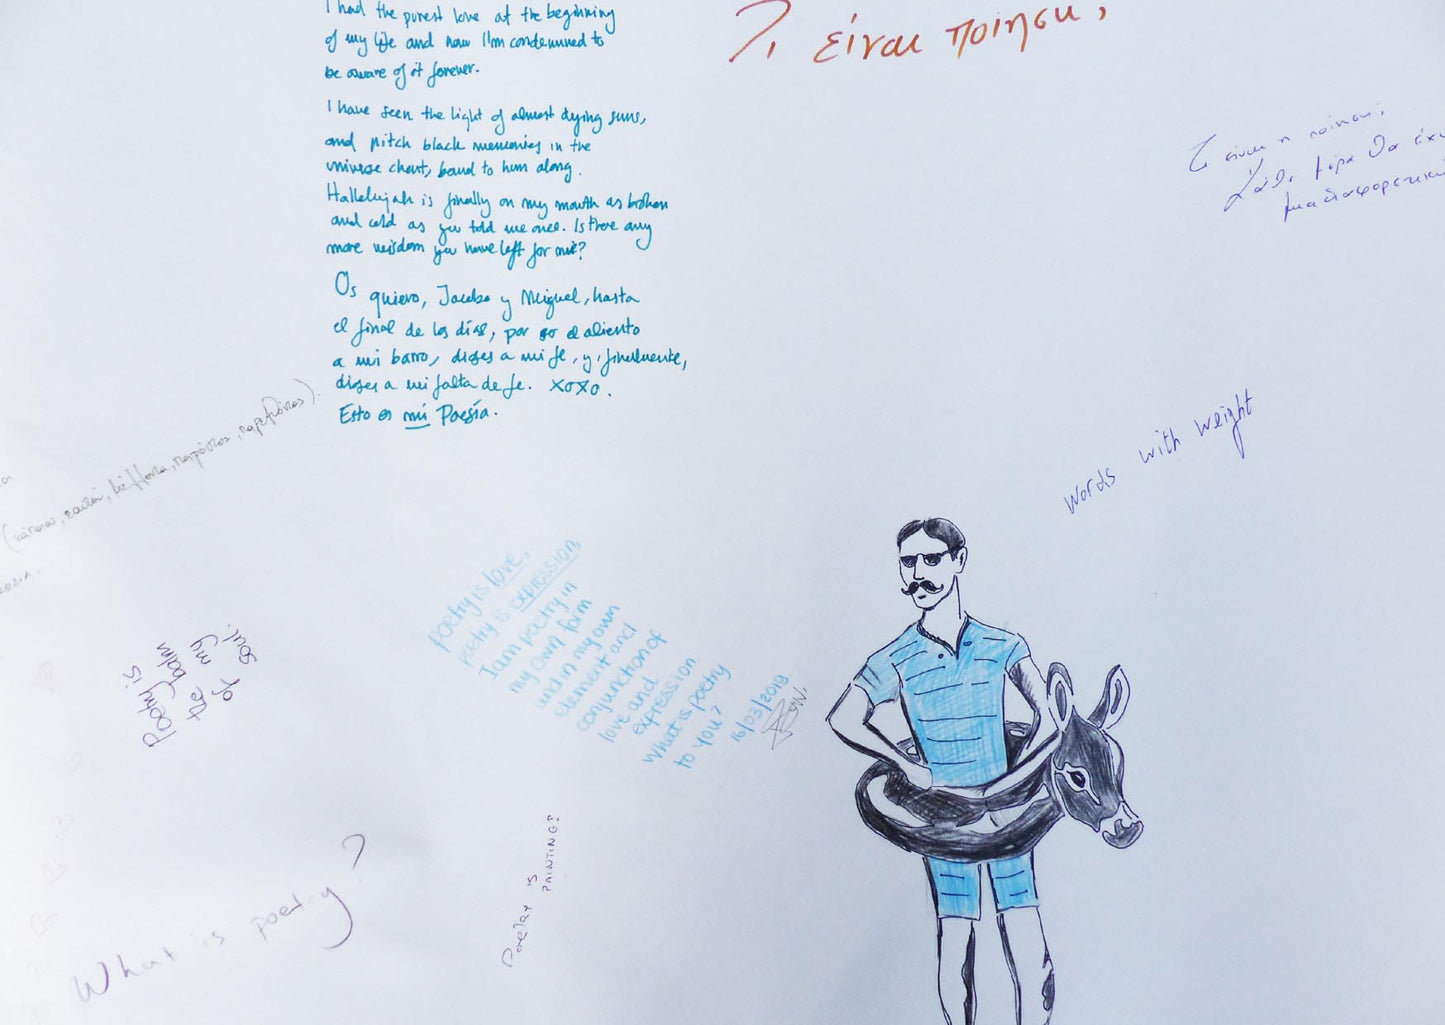 I had the purest love at the beginning
of my life and now I'm condemned to
be aware of it forever.
I have seen the light of almost dying suns,
and pitch black memories in the
universe chant, bound to hum along.
Hallelujah is finally on my mouth as broken
and cold as you told me once. Is there any
more wisdom you have left for me?
Os quiero, Jacobo y Miguel, hasta
el final de los días, por el aliento
a mi barro, dioses a mi fe, y, finalmente,
dioses a mi falta de fe. xoxo.
Esto es mi Poesía.
Τι είναι ποίηση;
Τι είναι η ποίηση;
Κάθε μέρα θα έχω
μια διαφορετική
words with weight
Poetry is love,
Poetry is expression
I am poetry in
my own form
and in my own
element and
conjunction of
love and
expression
What is poetry
to you?
16/03/2019
Poetry is
the balm
of my
soul.
What is poetry?
Poetry is
PAINTING!